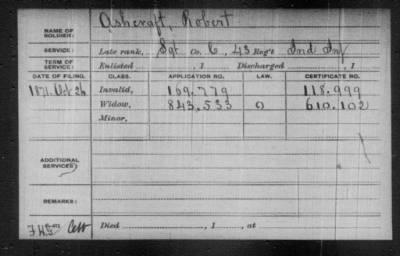 NAME OF SOLDIER: Ashcraft, Robert
SERVICE: Late rank, Sgt Co. C, 43 Reg't Ind Inf
TERM OF SERVICE: Enlisted , 1 Discharged , 1
DATE OF FILING. CLASS. APPLICATION NO. LAW. CERTIFICATE NO.
1871 Oct 26 Invalid, 169.779 118.999
Widow, 843.533 O 610.102
Minor,
ADDITIONAL SERVICES:
REMARKS:
Died , 1 , at